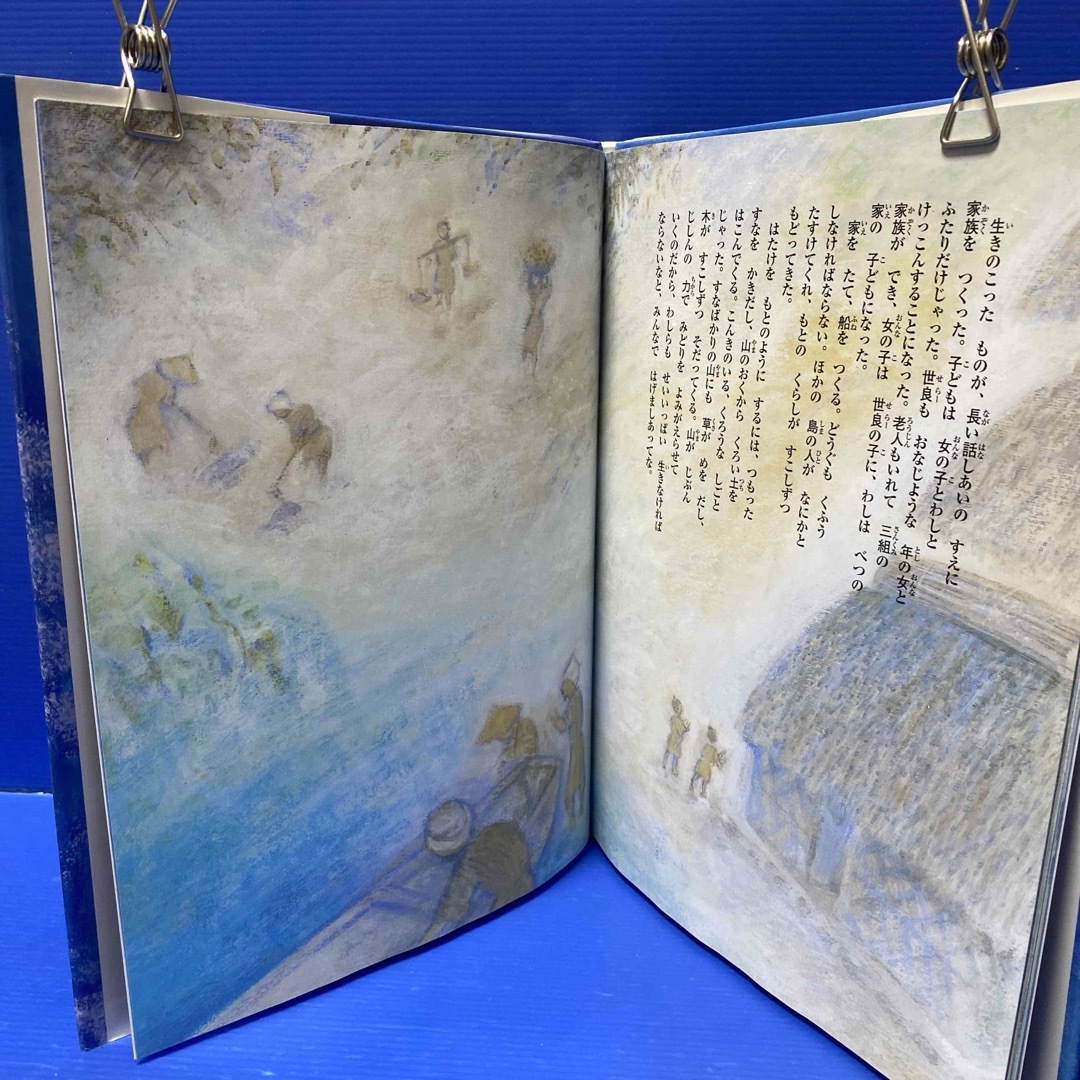 生きのこった ものが、長い話しあいの すえに
家族を つくった。子どもは 女の子とわしと
ふたりだけじゃった。世良も おなじような 年の女と
けっこんすることになった。老人もいれて 三組の
家族が でき、女の子は 世良の子に、わしは べつの
家の 子どもになった。
家を たて、船を つくる。どうぐも くふう
しなければならない。ほかの 島の人が なにかと
たすけてくれ、もとの くらしが すこしずつ
もどってきた。
はたけを もとのように するには、つもった
すなを かきだし、山のおくから くろい土を
はこんでくる。こんきのいる、くろうな しごと
じゃった。すなばかりの山にも 草が めを だし、
木が すこしずつ そだってくる。山が じぶん
じしんの 力で みどりを よみがえらせて
いくのだから、わしらも せいいっぱい 生きなければ
ならないなと、みんなで はげましあってな。